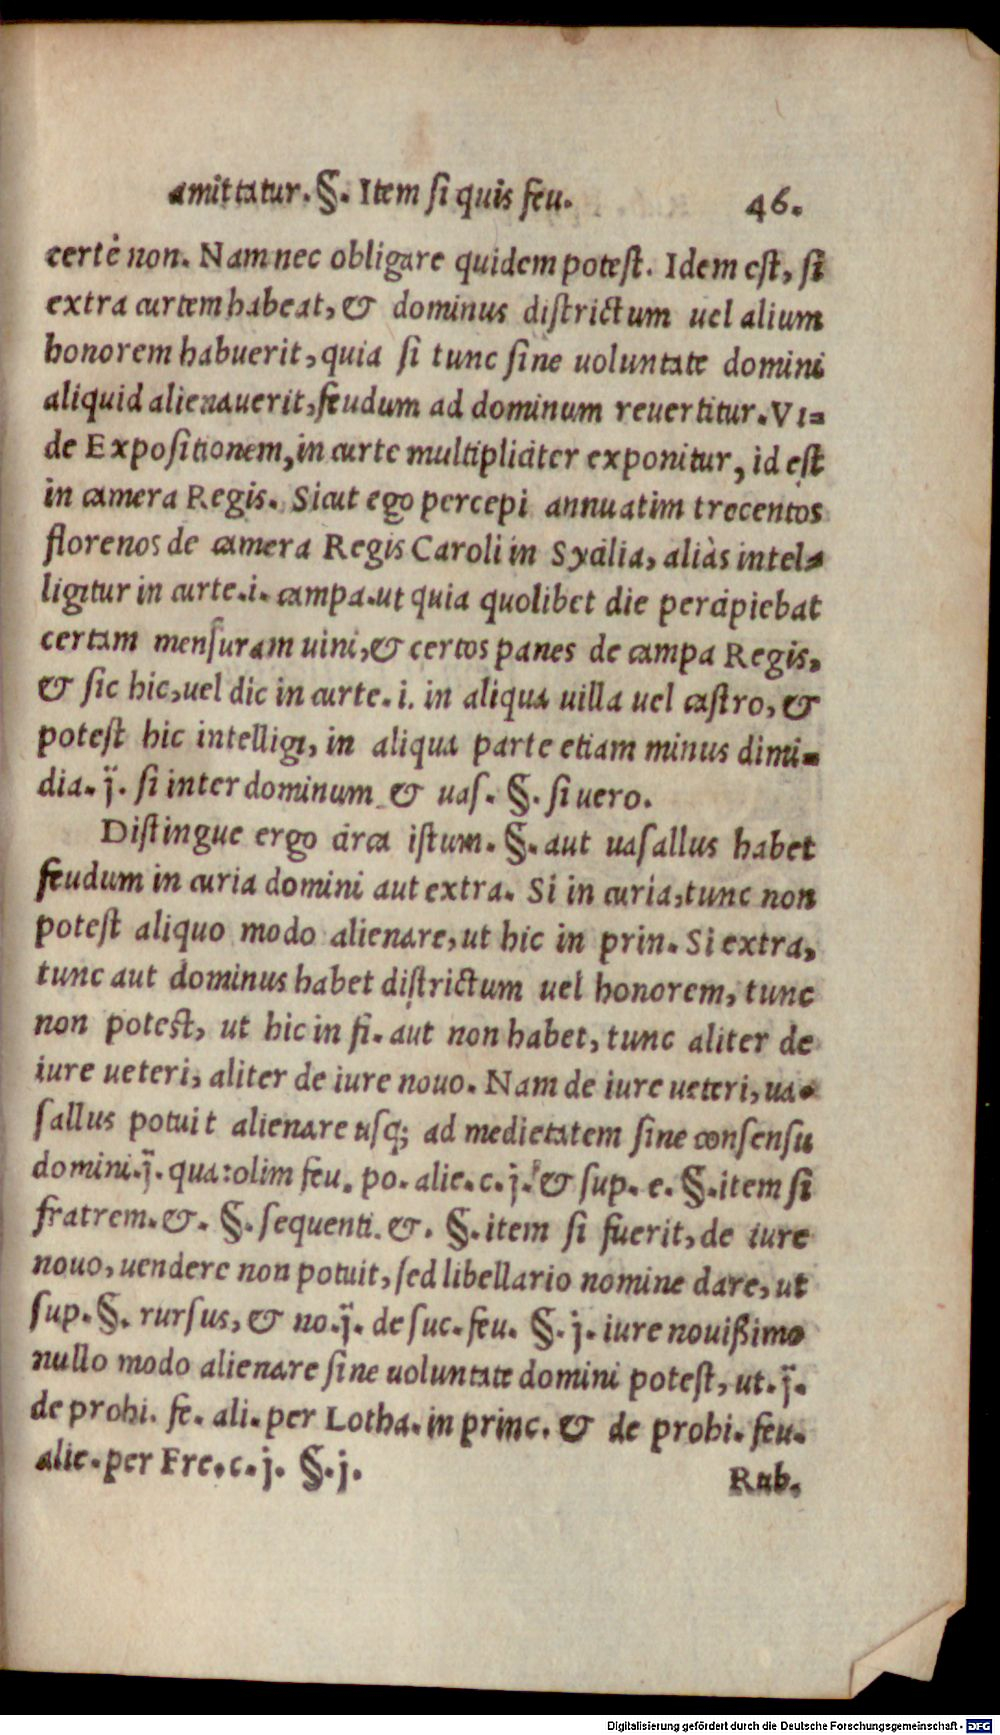 amittatur. §. Item si quis feu. 46.
certè non. Nam nec obligare quidem potest. Idem est, si
extra curtem habeat, & dominus districtum uel alium
honorem habuerit, quia si tunc sine uoluntate domini
aliquid alienauerit, feudum ad dominum reuertitur. Vi=
de Expositionem, in curte multipliciter exponitur, id est
in camera Regis. Sicut ego percepi annuatim trecentos
florenos de camera Regis Caroli in Sycilia, aliàs intel=
ligitur in curte. i. campa. ut quia quolibet die percipiebat
certam mensuram uini, & certos panes de campa Regis,
& sic hic, uel dic in curte. i. in aliqua uilla uel castro, &
potest hic intelligi, in aliqua parte etiam minus dimi=
dia. ij. si inter dominum & uas. §. si uero.
Distingue ergo circa istum. §. aut uasallus habet
feudum in curia domini aut extra. Si in curia, tunc non
potest aliquo modo alienare, ut hic in prin. Si extra,
tunc aut dominus habet districtum uel honorem, tunc
non potest, ut hic in fi. aut non habet, tunc aliter de
iure ueteri, aliter de iure nouo. Nam de iure ueteri, ua=
sallus potuit alienare usq; ad medietatem sine consensu
domini. ij. qua: olim feu. po. alie. c. j. & sup. e. §. item si
fratrem. &. §. sequenti. &. §. item si fuerit, de iure
nouo, uendere non potuit, sed libellario nomine dare, ut
sup. §. rursus, & no. ij. de suc. feu. §. j. iure nouißimo
nullo modo alienare sine uoluntate domini potest, ut. ij.
de prohi. fe. ali. per Lotha. in princ. & de prohi. feu.
alie. per Fre. c. j. §. j.
Rub.
Digitalisierung gefördert durch die Deutsche Forschungsgemeinschaft - DFG